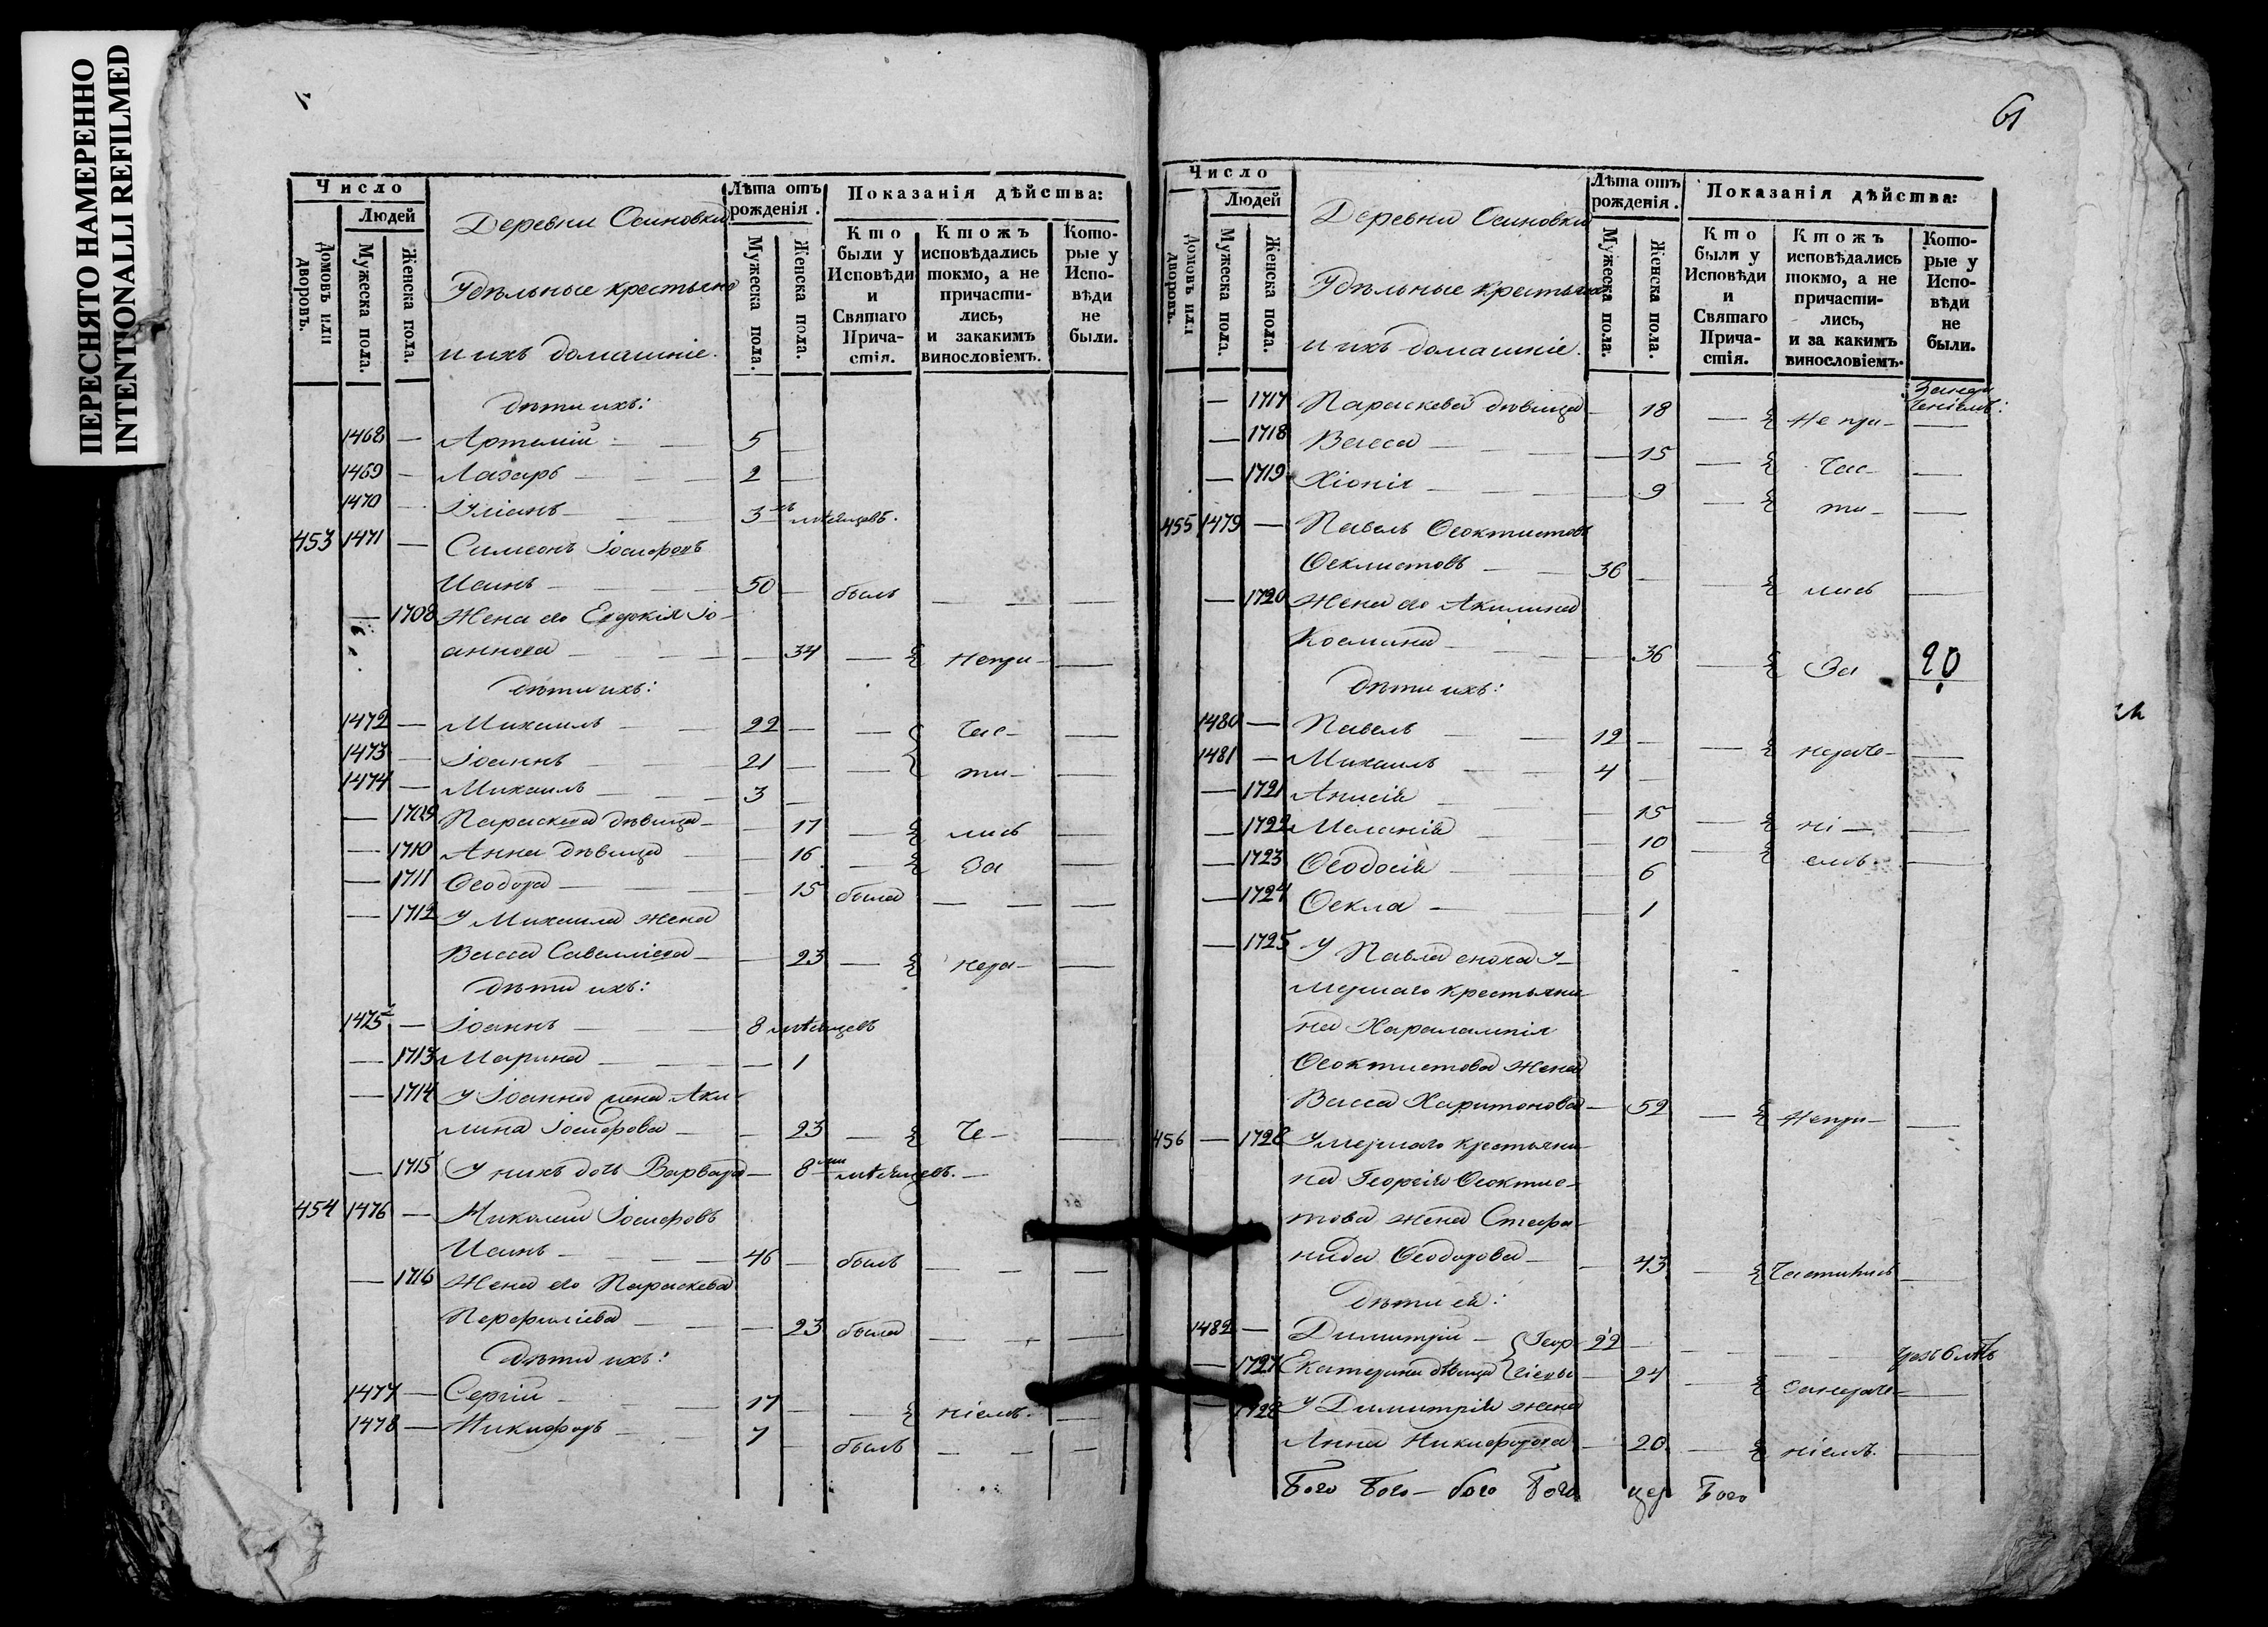 ПЕРЕСНЯТО НАМЕРЕННО
INTENTIONALLI REFILMED
Число
Людей
Домовъ или дворовъ.
Мужеска пола.
Женска пола.
Деревни Осиновки
Удѣльные крестьяне
и ихъ домашніе.
Лѣта отъ рожденія.
Мужеска пола.
Женска пола.
Показанія дѣйства:
Кто были у Исповѣди и Святаго Причастія.
Ктожъ исповѣдались токмо, а не причастились, и закакимъ винословіемъ.
Которые у Исповѣди не были.
дѣти ихъ:
1468 — Артемій — 5 —
1469 — Лазарь — 2 —
1470 — Іуліанъ — 3 мѣсяцевъ.
453 1471 — Симеонъ Іосифовъ
Исинъ — 50 — былъ — — —
— 1708 Жена его Евдокія Іо-
аннова — — 34 — Непри- —
дѣти ихъ:
1472 — Михаилъ — 22 — — час- —
1473 — Іоаннъ — 21 — — ти- —
1474 — Михаилъ — 3 —
— 1709 Параскева дѣвица — — 17 — лись —
— 1710 Анна дѣвица — — 16 — За —
— 1711 Ѳеодора — — 15 была — — —
— 1712 У Михаила жена
Васса Савелліева — — 23 — нера- —
дѣти ихъ:
1475 — Іоаннъ — 8 мѣсяцевъ
— 1713 Марина — — 1
— 1714 У Іоанна жена Аки-
лина Іосифова — — 23 — че- —
— 1715 У нихъ дочь Варвара — 8 мѣсяцевъ. —
454 1476 — Николай Іосифовъ
Исинъ — 46 — былъ — — —
— 1716 Жена его Параскева
Перфиліева — — 23 была — — —
дѣти ихъ:
1477 — Сергій — 17 — — ніемъ. —
1478 — Никифоръ — 7 — былъ — — —
61
Число
Людей
Домовъ или дворовъ.
Мужеска пола.
Женска пола.
Деревни Осиновки
Удѣльные крестьяне
и ихъ домашніе.
Лѣта отъ рожденія.
Мужеска пола.
Женска пола.
Показанія дѣйства:
Кто были у Исповѣди и Святаго Причастія.
Ктожъ исповѣдались токмо, а не причастились, и за какимъ винословіемъ.
Которые у Исповѣди не были.
— 1717 Параскева дѣвица — 18 — Не при- —
— 1718 Васса — — 15 — час- —
— 1719 Хіонія — — 9 — ти- —
455 1479 — Павелъ Ѳеоктистовъ
Ѳеклистовъ — 36 — — лись —
— 1720 Жена его Акилина
Космина — — 36 — За 20
дѣти ихъ:
1480 — Павелъ — 12 — — нераче- —
1481 — Михаилъ — 4 —
— 1721 Анисія — — 15 — ні- —
— 1722 Меланія — — 10 — емъ —
— 1723 Ѳеодосія — — 6
— 1724 Ѳекла — — 1
— 1725 У Павла сноха у-
мершаго крестьяни-
на Харалампія
Ѳеоктистова жена
Васса Харитонова — 52 — Непри- —
456 — 1726 Умершаго крестьяни-
на Георгія Ѳеоктис-
това жена Стефа-
нида Ѳеодорова — — 43 — частились —
дѣти ея:
1482 — Димитрій — Геор- 22 — — —
— 1727 Екатерина дѣвица гіевы — 24 — занераче- —
— 1728 У Димитрія жена
Анна Никифорова — 20 — ніемъ. —